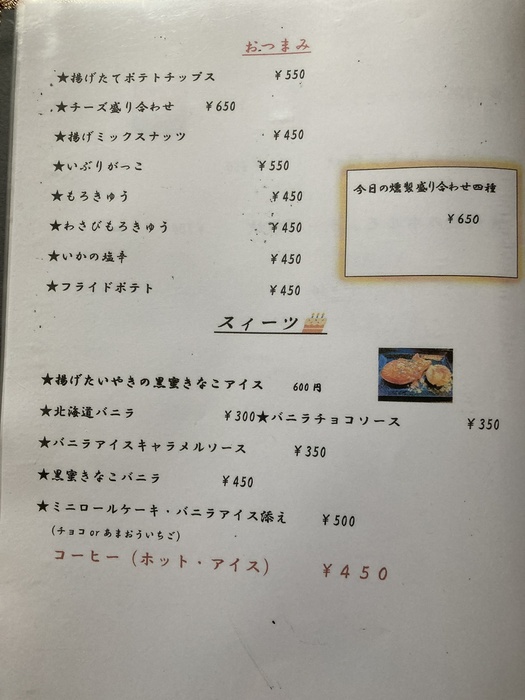 おつまみ
★揚げたてポテトチップス ¥550
★チーズ盛り合わせ ¥650
★揚げミックスナッツ ¥450
★いぶりがっこ ¥550
★もろきゅう ¥450
★わさびもろきゅう ¥450
★いかの塩辛 ¥450
★フライドポテト ¥450
今日の燻製盛り合わせ四種
¥650
スィーツ
★揚げたいやきの黒蜜きなこアイス 600円
★北海道バニラ ¥300★バニラチョコソース ¥350
★バニラアイスキャラメルソース ¥350
★黒蜜きなこバニラ ¥450
★ミニロールケーキ・バニラアイス添え ¥500
(チョコorあまおういちご)
コーヒー(ホット・アイス) ¥450